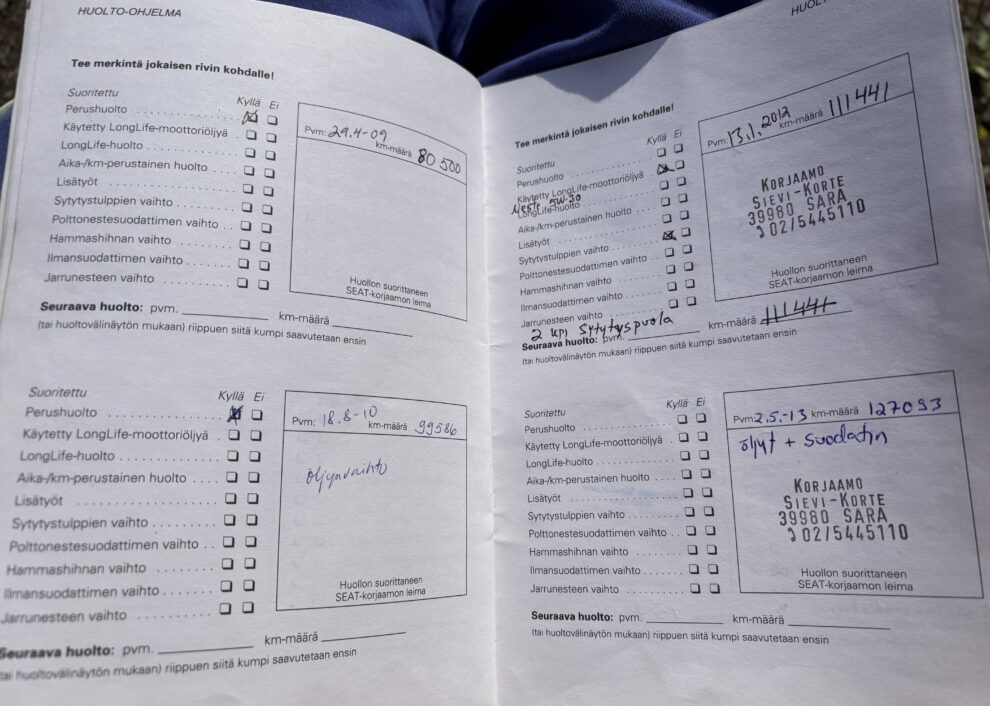 HUOLTO-OHJELMA
Tee merkintä jokaisen rivin kohdalle!
Suoritettu Kyllä Ei
Perushuolto
Käytetty LongLife-moottoriöljyä
LongLife-huolto
Aika-/km-perustainen huolto
Lisätyöt
Sytytystulppien vaihto
Polttonestesuodattimen vaihto
Hammashihnan vaihto
Ilmansuodattimen vaihto
Jarrunesteen vaihto
Pvm: 29.4-09
km-määrä 80 500
Huollon suorittaneen
SEAT-korjaamon leima
Seuraava huolto: pvm. km-määrä
(tai huoltovälinäytön mukaan) riippuen siitä kumpi saavutetaan ensin
Suoritettu Kyllä Ei
Perushuolto
Käytetty LongLife-moottoriöljyä
LongLife-huolto
Aika-/km-perustainen huolto
Lisätyöt
Sytytystulppien vaihto
Polttonestesuodattimen vaihto
Hammashihnan vaihto
Ilmansuodattimen vaihto
Jarrunesteen vaihto
Pvm: 18.8-10 km-määrä 99586
öljynvaihto
Huollon suorittaneen
SEAT-korjaamon leima
Seuraava huolto: pvm. km-määrä
(tai huoltovälinäytön mukaan) riippuen siitä kumpi saavutetaan ensin
Tee merkintä jokaisen rivin kohdalle!
Suoritettu Kyllä Ei
Perushuolto
Käytetty LongLife-moottoriöljyä
Neste 5W-30
LongLife-huolto
Aika-/km-perustainen huolto
Lisätyöt
Sytytystulppien vaihto
Polttonestesuodattimen vaihto
Hammashihnan vaihto
Ilmansuodattimen vaihto
Jarrunesteen vaihto
2 kpl Sytytyspuola
Pvm: 13.1.2012 km-määrä 111441
KORJAAMO
SIEVI-KORTE
39980 SARA
02/5445110
Huollon suorittaneen
SEAT-korjaamon leima
Seuraava huolto: pvm. km-määrä 111441
(tai huoltovälinäytön mukaan) riippuen siitä kumpi saavutetaan ensin
Suoritettu Kyllä Ei
Perushuolto
Käytetty LongLife-moottoriöljyä
LongLife-huolto
Aika-/km-perustainen huolto
Lisätyöt
Sytytystulppien vaihto
Polttonestesuodattimen vaihto
Hammashihnan vaihto
Ilmansuodattimen vaihto
Jarrunesteen vaihto
Pvm 2.5.-13 km-määrä 127093
öljyt + suodatin
KORJAAMO
SIEVI-KORTE
39980 SARA
02/5445110
Huollon suorittaneen
SEAT-korjaamon leima
Seuraava huolto: pvm. km-määrä
(tai huoltovälinäytön mukaan) riippuen siitä kumpi saavutetaan ensin